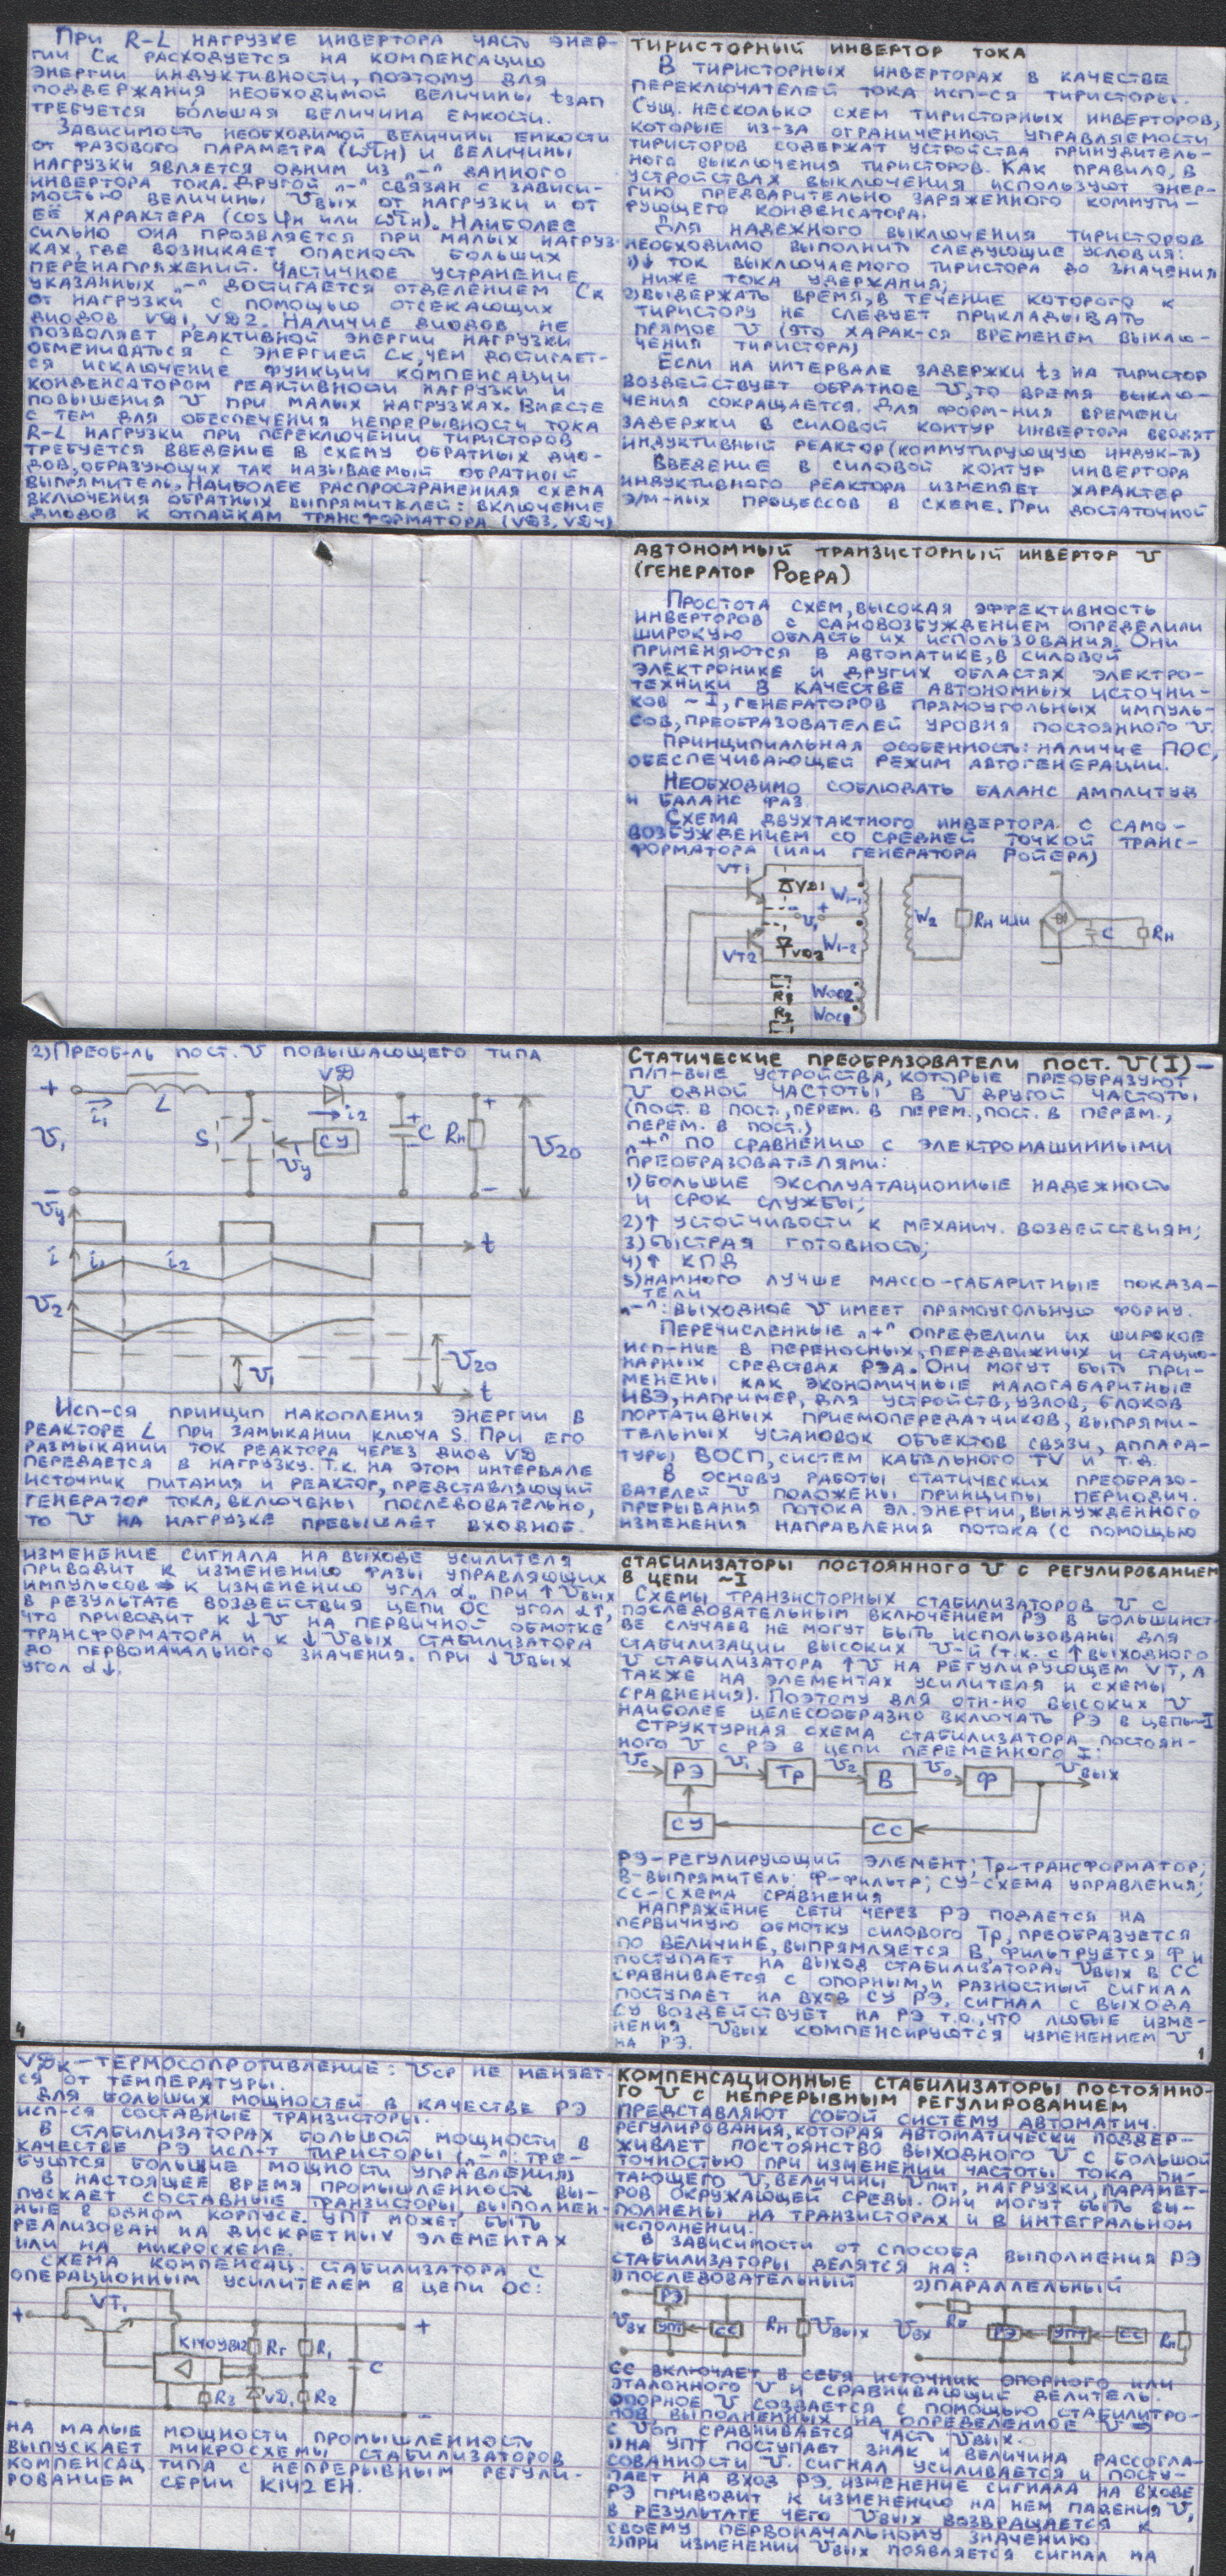 При R-L нагрузке инвертора часть энер-
гии Ск расходуется на компенсацию
энергии индуктивности, поэтому для
поддержания необходимой величины tзап
требуется бóльшая величина емкости.
Зависимость необходимой величины емкости
от фазового параметра (ωτн) и величины
нагрузки является одним из „-" данного
инвертора тока. Другой „-" связан с зависи-
мостью величины Uвых от нагрузки и от
её характера (cosφн или ωτн). Наиболее
сильно она проявляется при малых нагруз-
ках, где возникает опасность больших
перенапряжений. Частичное устранение
указанных „-" достигается отделением Ск
от нагрузки с помощью отсекающих
диодов VD1, VD2. Наличие диодов не
позволяет реактивной энергии нагрузки
обмениваться с энергией Ск, чем достигает-
ся исключение функции компенсации
конденсатором реактивности нагрузки и
повышения U при малых нагрузках. Вместе
с тем для обеспечения непрерывности тока
R-L нагрузки при переключении тиристоров
требуется введение в схему обратных дио-
дов, образующих так называемый обратный
выпрямитель. Наиболее распространенная схема
включения обратных выпрямителей: включение
диодов к отпайкам трансформатора (VD3, VD4)
Тиристорный инвертор тока
В тиристорных инверторах в качестве
переключателей тока исп-ся тиристоры.
Сущ. несколько схем тиристорных инверторов,
которые из-за ограниченной управляемости
тиристоров содержат устройства принудитель-
ного выключения тиристоров. Как правило, в
устройствах выключения используют энер-
гию предварительно заряженного коммути-
рующего конденсатора.
Для надежного выключения тиристоров
необходимо выполнить следующие условия:
1)↓ ток выключаемого тиристора до значения
ниже тока удержания;
2)выдержать время, в течение которого к
тиристору не следует прикладывать
прямое U (это харак-ся временем выклю-
чения тиристора)
Если на интервале задержки tз на тиристор
воздействует обратное U, то время выклю-
чения сокращается. Для форм-ния времени
задержки в силовой контур инвертора вводят
индуктивный реактор (коммутирующую индук-ть)
Введение в силовой контур инвертора
индуктивного реактора изменяет характер
э/м-ных процессов в схеме. При достаточной
Автономный транзисторный инвертор U
(генератор Роера)
Простота схем, высокая эффективность
инверторов с самовозбуждением определили
широкую область их использования. Они
применяются в автоматике, в силовой
электронике и других областях электро-
техники в качестве автономных источни-
ков ~I, генераторов прямоугольных импуль-
сов, преобразователей уровня постоянного U.
Принципиальная особенность: наличие ПОС,
обеспечивающей режим автогенерации.
Необходимо соблювать баланс амплитуд
и баланс фаз.
Схема двухтактного инвертора с само-
возбуждением со средней точкой транс-
форматора (или генератора Ройера)
VT1 VD1 W1-1
- + U1 W2 Rн или C Rн
VT2 VD2 W1-2
R1 Wос2
R2 Wос1
2)Преоб-ль пост. U повышающего типа
+ i1 L VD i2 +
U1 S Uу СУ C Rн U20
- -
Uу t
i i1 i2
U2 U1 U20
t
Исп-ся принцип накопления энергии в
реакторе L при замыкании ключа S. При его
размыкании ток реактора через диод VD
передается в нагрузку. Т.к. на этом интервале
источник питания и реактор, представляющий
генератор тока, включены последовательно,
то U на нагрузке превышает входное.
Статические преобразователи пост. U(I) —
п/п-вые устройства, которые преобразуют
U одной частоты в U другой частоты
(пост. в пост., перем. в перем., пост. в перем.,
перем. в пост.)
„+" по сравнению с электромашинными
преобразователями:
1)большие эксплуатационные надежность
и срок службы;
2)↑ устойчивости к механич. воздействиям;
3)быстрая готовность;
4)↑ КПД
5)намного лучше массо-габаритные показа-
тели
„-": выходное U имеет прямоугольную форму.
Перечисленные „+" определили их широкое
исп-ние в переносных, передвижных и стацио-
нарных средствах РЭА. Они могут быть при-
менены как экономичные малогабаритные
ИВЭ, например, для устройств, узлов, блоков
портативных приемопередатчиков, выпрями-
тельных установок объектов связи, аппара-
туры ВОСП, систем кабельного TV и т.д.
В основу работы статических преобразо-
вателей U положены принципы периодич.
прерывания потока эл. энергии, вынужденного
изменения направления потока (с помощью
изменение сигнала на выходе усилителя
приводит к изменению фазы управляющих
импульсов ⇒ к изменению угла α. При ↑Uвых
в результате воздействия цепи ОС угол α↑,
что приводит к ↓U на первичной обмотке
трансформатора и к ↓Uвых стабилизатора
до первоначального значения. При ↓Uвых
угол α↓.
4
Стабилизаторы постоянного U с регулированием
в цепи ~I
Схемы транзисторных стабилизаторов U с
последовательным включением РЭ в большинст-
ве случаев не могут быть использованы для
стабилизации высоких U-й (т.к. с ↑ выходного
U стабилизатора ↑U на регулирующем VT, а
также на элементах усилителя и схемы
сравнения). Поэтому для отн-но высоких U
наиболее целесообразно включать РЭ в цепь~I
Структурная схема стабилизатора постоян-
ного U с РЭ в цепи переменного I:
Uc РЭ U1 Тр U2 В U0 Ф Uвых
СУ СС
РЭ-регулирующий элемент; Тр-трансформатор;
В-выпрямитель; Ф-фильтр; СУ-схема управления;
СС-схема сравнения
Напряжение сети через РЭ подается на
первичную обмотку силового Тр, преобразуется
по величине, выпрямляется В, фильтруется Ф и
поступает на выход стабилизатора. Uвых в СС
сравнивается с опорным, и разностный сигнал
поступает на вход СУ РЭ. Сигнал с выхода
СУ воздействует на РЭ т.о., что любые изме-
нения Uвых компенсируются изменением U
на РЭ.
1
VDк-термосопротивление: Uср не меняет-
ся от температуры.
Для больших мощностей в качестве РЭ
исп-ся составные транзисторы.
В стабилизаторах большой мощности в
качестве РЭ исп-т тиристоры („-": тре-
буются большие мощности управления)
В настоящее время промышленность вы-
пускает составные транзисторы, выполнен-
ные в одном корпусе. УПТ может быть
реализован на дискретных элементах
или на микросхеме.
Схема компенсац. стабилизатора с
операционным усилителем в цепи ОС:
+ VT1 +
К140УВ12 Rг R1 C
R3 VD1 R2
- -
На малые мощности промышленность
выпускает микросхемы стабилизаторов
компенсац. типа с непрерывным регули-
рованием серии К142 ЕН.
4
Компенсационные стабилизаторы постоянно-
го U с непрерывным регулированием
представляют собой систему автоматич.
регулирования, которая автоматически поддер-
живает постоянство выходного U с большой
точностью при изменении частоты тока пи-
тающего U, величины Uпит, нагрузки, парамет-
ров окружающей среды. Они могут быть вы-
полнены на транзисторах и в интегральном
исполнении.
В зависимости от способа выполнения РЭ
стабилизаторы делятся на:
1)последовательный
2)параллельный
РЭ Uвх УПТ СС Rн Uвых
Uвх РЭ УПТ СС Rн
СС включает в себя источник опорного или
эталонного U и сравнивающий делитель.
Опорное U создается с помощью стабилитро-
нов, выполненных на определенное U ⇒
с Uоп сравнивается часть Uвых.
1)на УПТ поступает знак и величина рассогла-
сованности U. Сигнал усиливается и посту-
пает на вход РЭ. Изменение сигнала на входе
РЭ приводит к изменению на нем падения U,
в результате чего Uвых возвращается к
своему первоначальному значению
2)при изменении Uвых появляется сигнал на
1